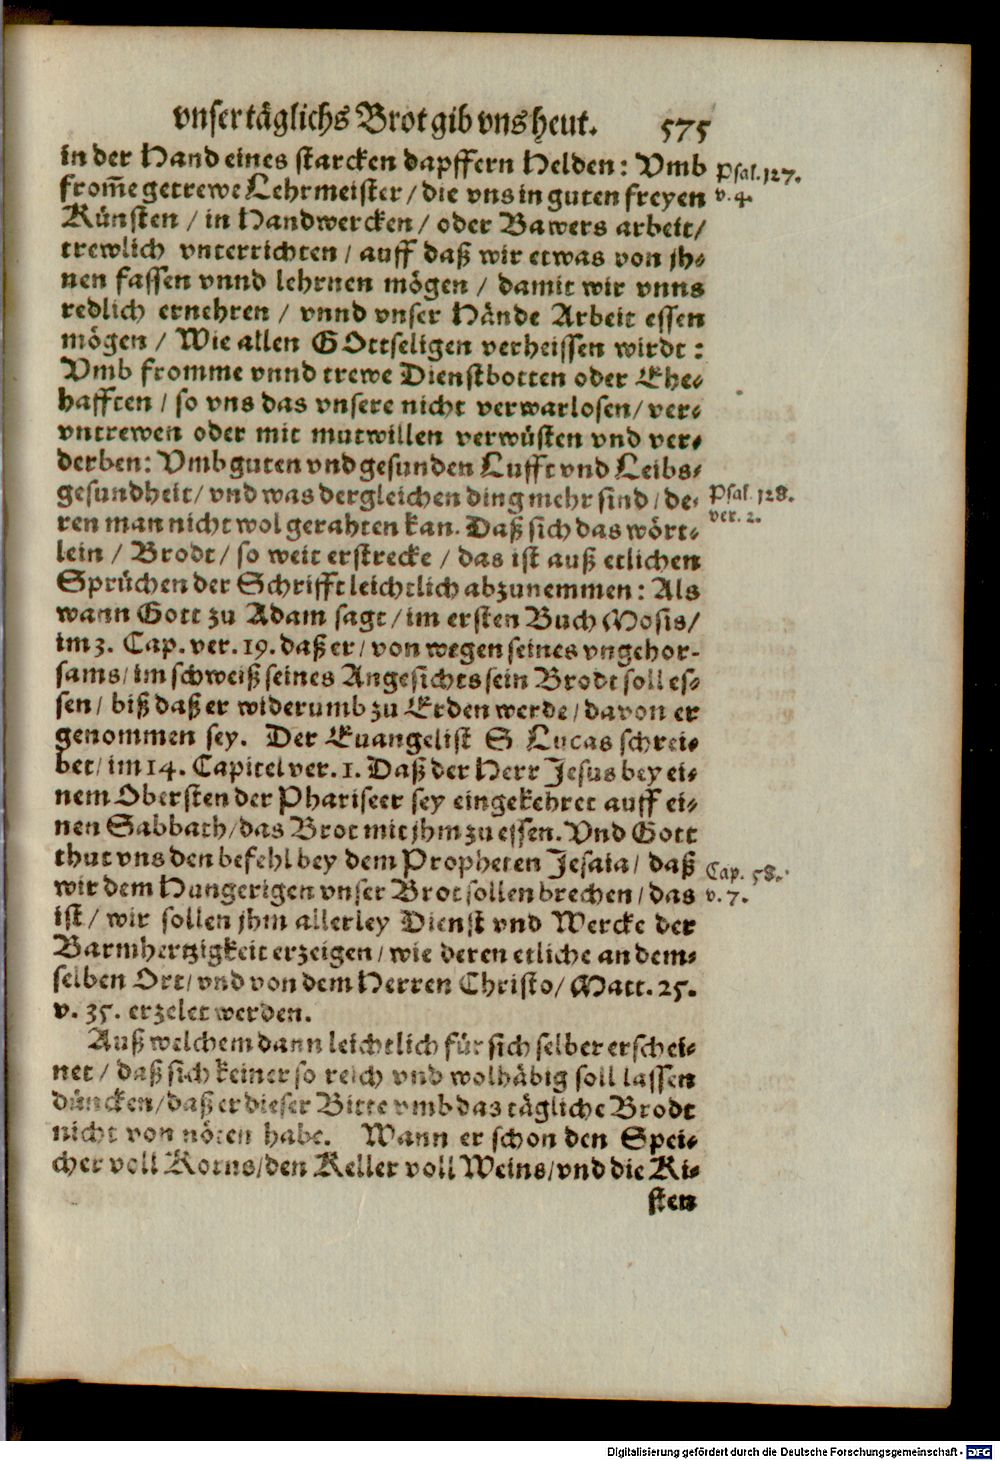 vnser täglichs Brot gib vns heut. 575
in der Hand eines starcken dapffern Helden: Vmb
Psal. 127.
from̃e getrewe Lehrmeister / die vns in guten freyen
v. 4.
Künsten / in Handwercken / oder Bawers arbeit /
trewlich vnterrichten / auff daß wir etwas von jh-
nen fassen vnnd lehrnen mögen / damit wir vnns
redlich ernehren / vnnd vnser Hände Arbeit essen
mögen / Wie allen GOttseligen verheissen wirdt:
Vmb fromme vnnd trewe Dienstbotten oder Ehe-
hafften / so vns das vnsere nicht verwarlosen / ver-
vntrewen oder mit mutwillen verwüsten vnd ver-
derben: Vmb guten vnd gesunden Lufft vnd Leibs-
gesundheit / vnd was dergleichen ding mehr sind / de-
Psal. 128.
ver. 2.
ren man nicht wol gerahten kan. Daß sich das wört-
lein / Brodt / so weit erstrecke / das ist auß etlichen
Sprüchen der Schrifft leichtlich abzunemmen: Als
wann Gott zu Adam sagt / im ersten Buch Mosis /
im 3. Cap. ver. 19. daß er / von wegen seines vngehor-
sams / im schweiß seines Angesichts sein Brodt soll es-
sen / biß daß er widerumb zu Erden werde / davon er
genommen sey. Der Euangelist S Lucas schrei-
bet / im 14. Capitel ver. 1. Daß der Herr Jesus bey ei-
nem Obersten der Phariseer sey eingekehret auff ei-
nen Sabbath / das Brot mit jhm zu essen. Vnd Gott
thut vns den befehl bey dem Propheten Jesaia / daß
Cap. 58.
wir dem Hungerigen vnser Brot sollen brechen / das
v. 7.
ist / wir sollen jhm allerley Dienst vnd Wercke der
Barmhertzigkeit erzeigen / wie deren etliche an dem-
selben Ort / vnd von dem Herren Christo / Matt. 25.
v. 35. erzelet werden.
Auß welchem dann leichtlich für sich selber erschei-
net / daß sich keiner so reich vnd wolhäbig soll lassen
düncken / daß er dieser Bitte vmb das tägliche Brodt
nicht von nöten habe. Wann er schon den Spei-
cher voll Korns / den Keller voll Weins / vnd die Ki-
sten
Digitalisierung gefördert durch die Deutsche Forschungsgemeinschaft - DFG